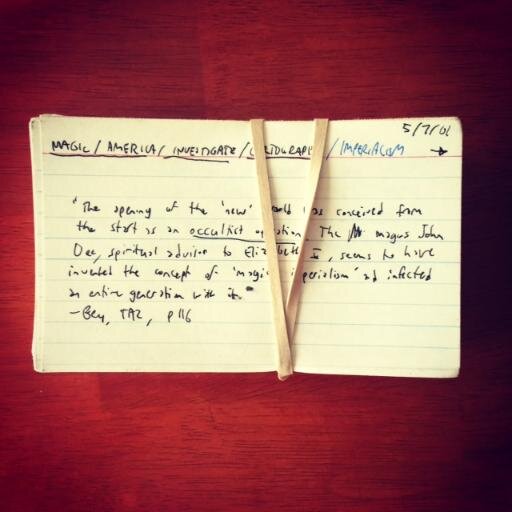 5/7/01
MAGIC / AMERICA / INVESTIGATE / CARTOGRAPHY / IMPERIALISM →
"The opening of the 'new' world was conceived from
the start as an occultist operation. The magus John
Dee, spiritual advisor to Elizabeth I, seems to have
invented the concept of 'magical imperialism' and infected
an entire generation with it."
- Bey, TAZ, p 116